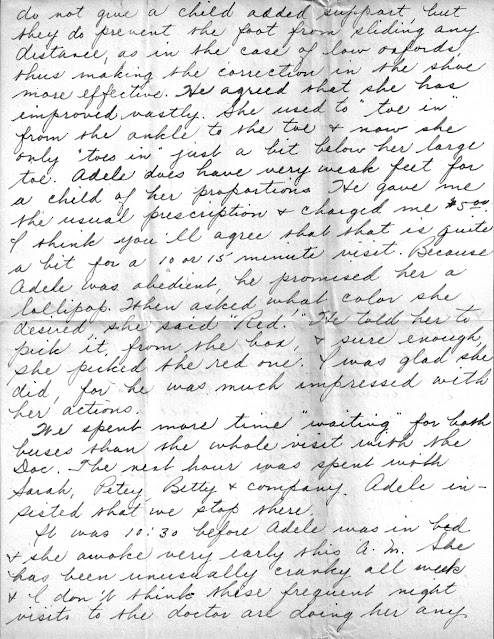 do not give a child added support, but
they do prevent the foot from sliding any
distance, as in the case of low oxfords
thus making the correction in the shoe
more effective. He agreed that she has
improved vastly. She used to "toe in"
from the ankle to the toe & now she
only "toes in" just a bit below her large
toe. Adele does have very weak feet for
a child of her proportions. He gave me
the usual prescription & charged me $5.00.
I think you'll agree that that is quite
a bit for a 10 or 15 minute visit. Because
Adele was obedient, he promised her a
lollipop. When asked what color she
desired she said "Red." He told her to
pick it from the box, & sure enough,
she picked the red one. I was glad she
did, for he was much impressed with
her actions.
We spent more time "waiting" for both
buses than the whole visit with the
Doc. The next hour was spent with
Sarah, Petey, Betty & company. Adele in-
sisted that we stop there.
It was 10:30 before Adele was in bed
& she awoke very early this A.M. She
has been unusually cranky all week
& I don't think these frequent night
visits to the doctor are doing her any